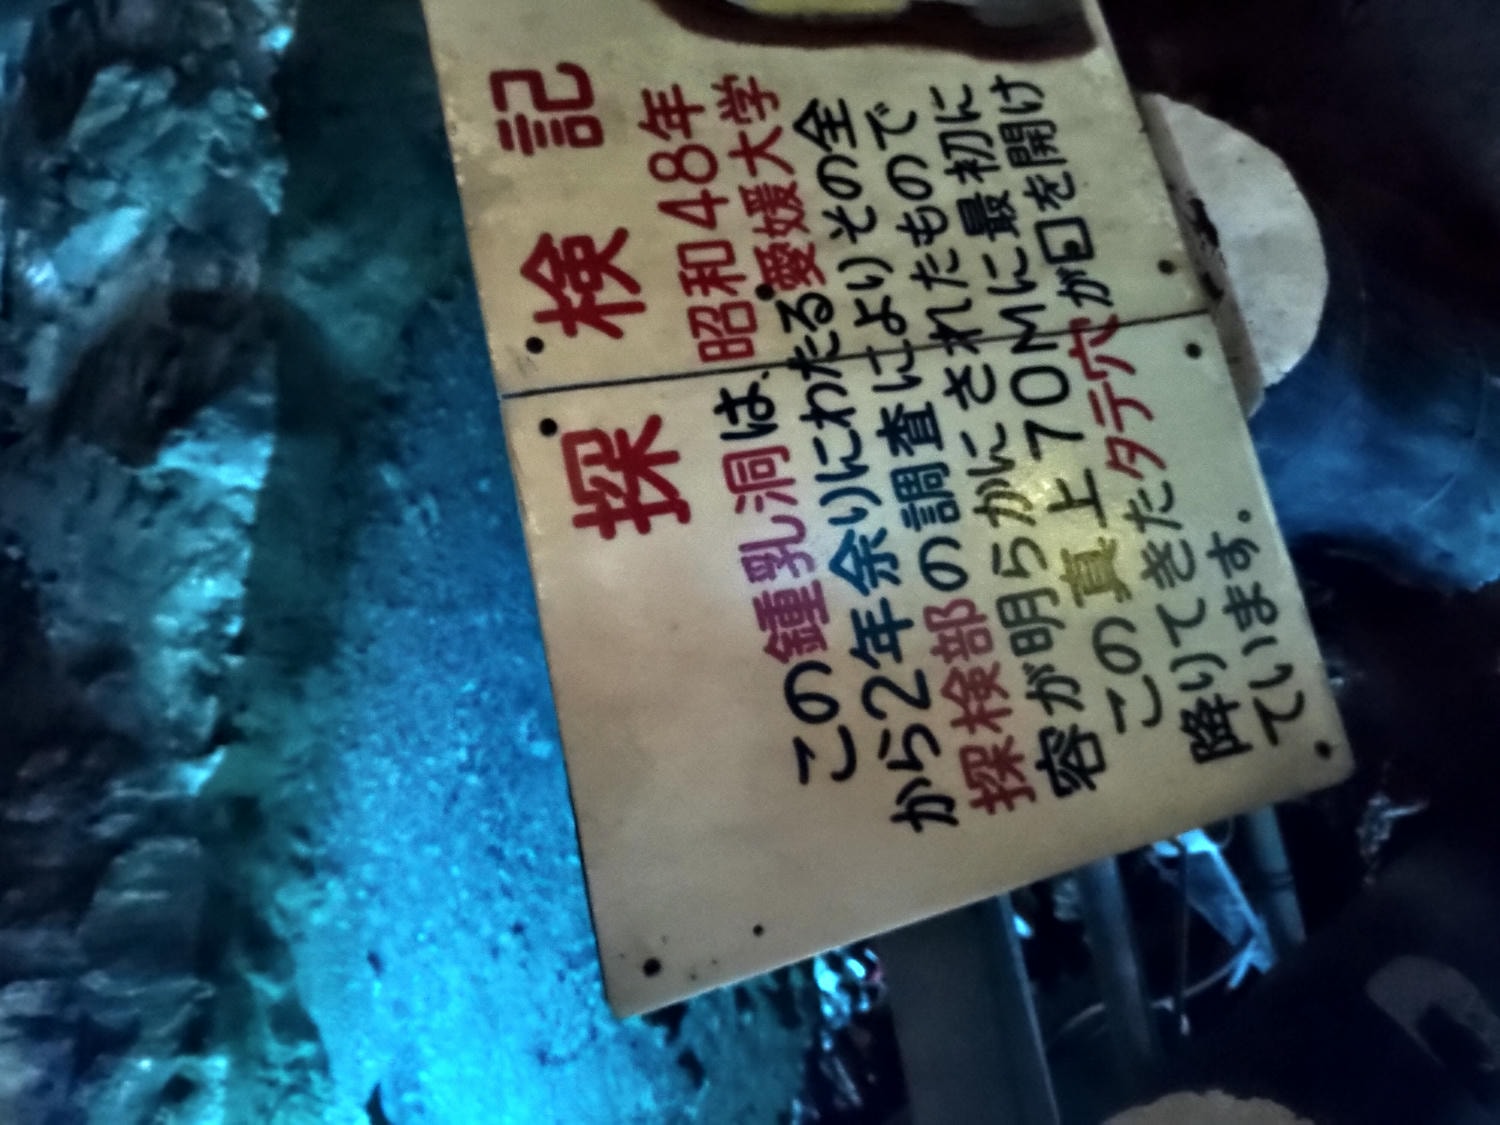 探検記
この鍾乳洞は、昭和48年
から2年余りにわたる愛媛大学
探検部の調査によりその全
容が明らかにされたもので
この真上70Mに最初に
降りてきたタテ穴が口を開け
ています。